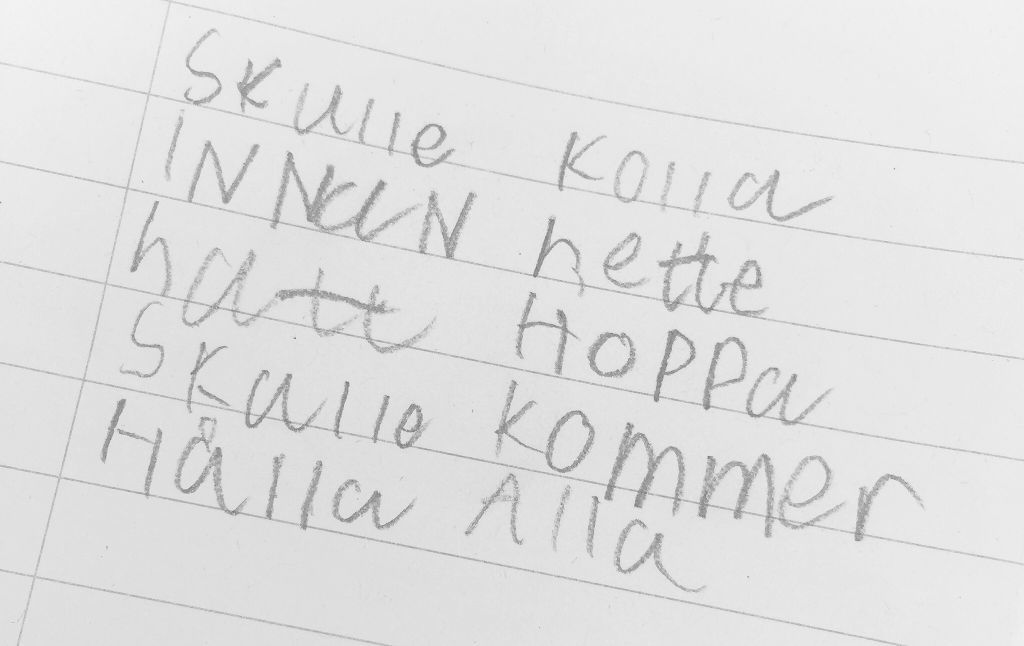 Skulle Kolla
INNaN hette
hatt HOPPa
Skalle kommer
Hålla Alla